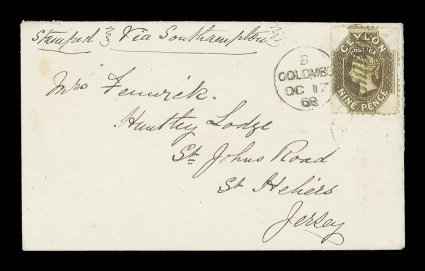 Stamped Via Southampton
CEYLON
POSTAGE
NINE PENCE
B
COLOMBO
OC 17
68
Mrs Fenwick.
Huntley Lodge
St. Johns Road
St Heliers
Jersey